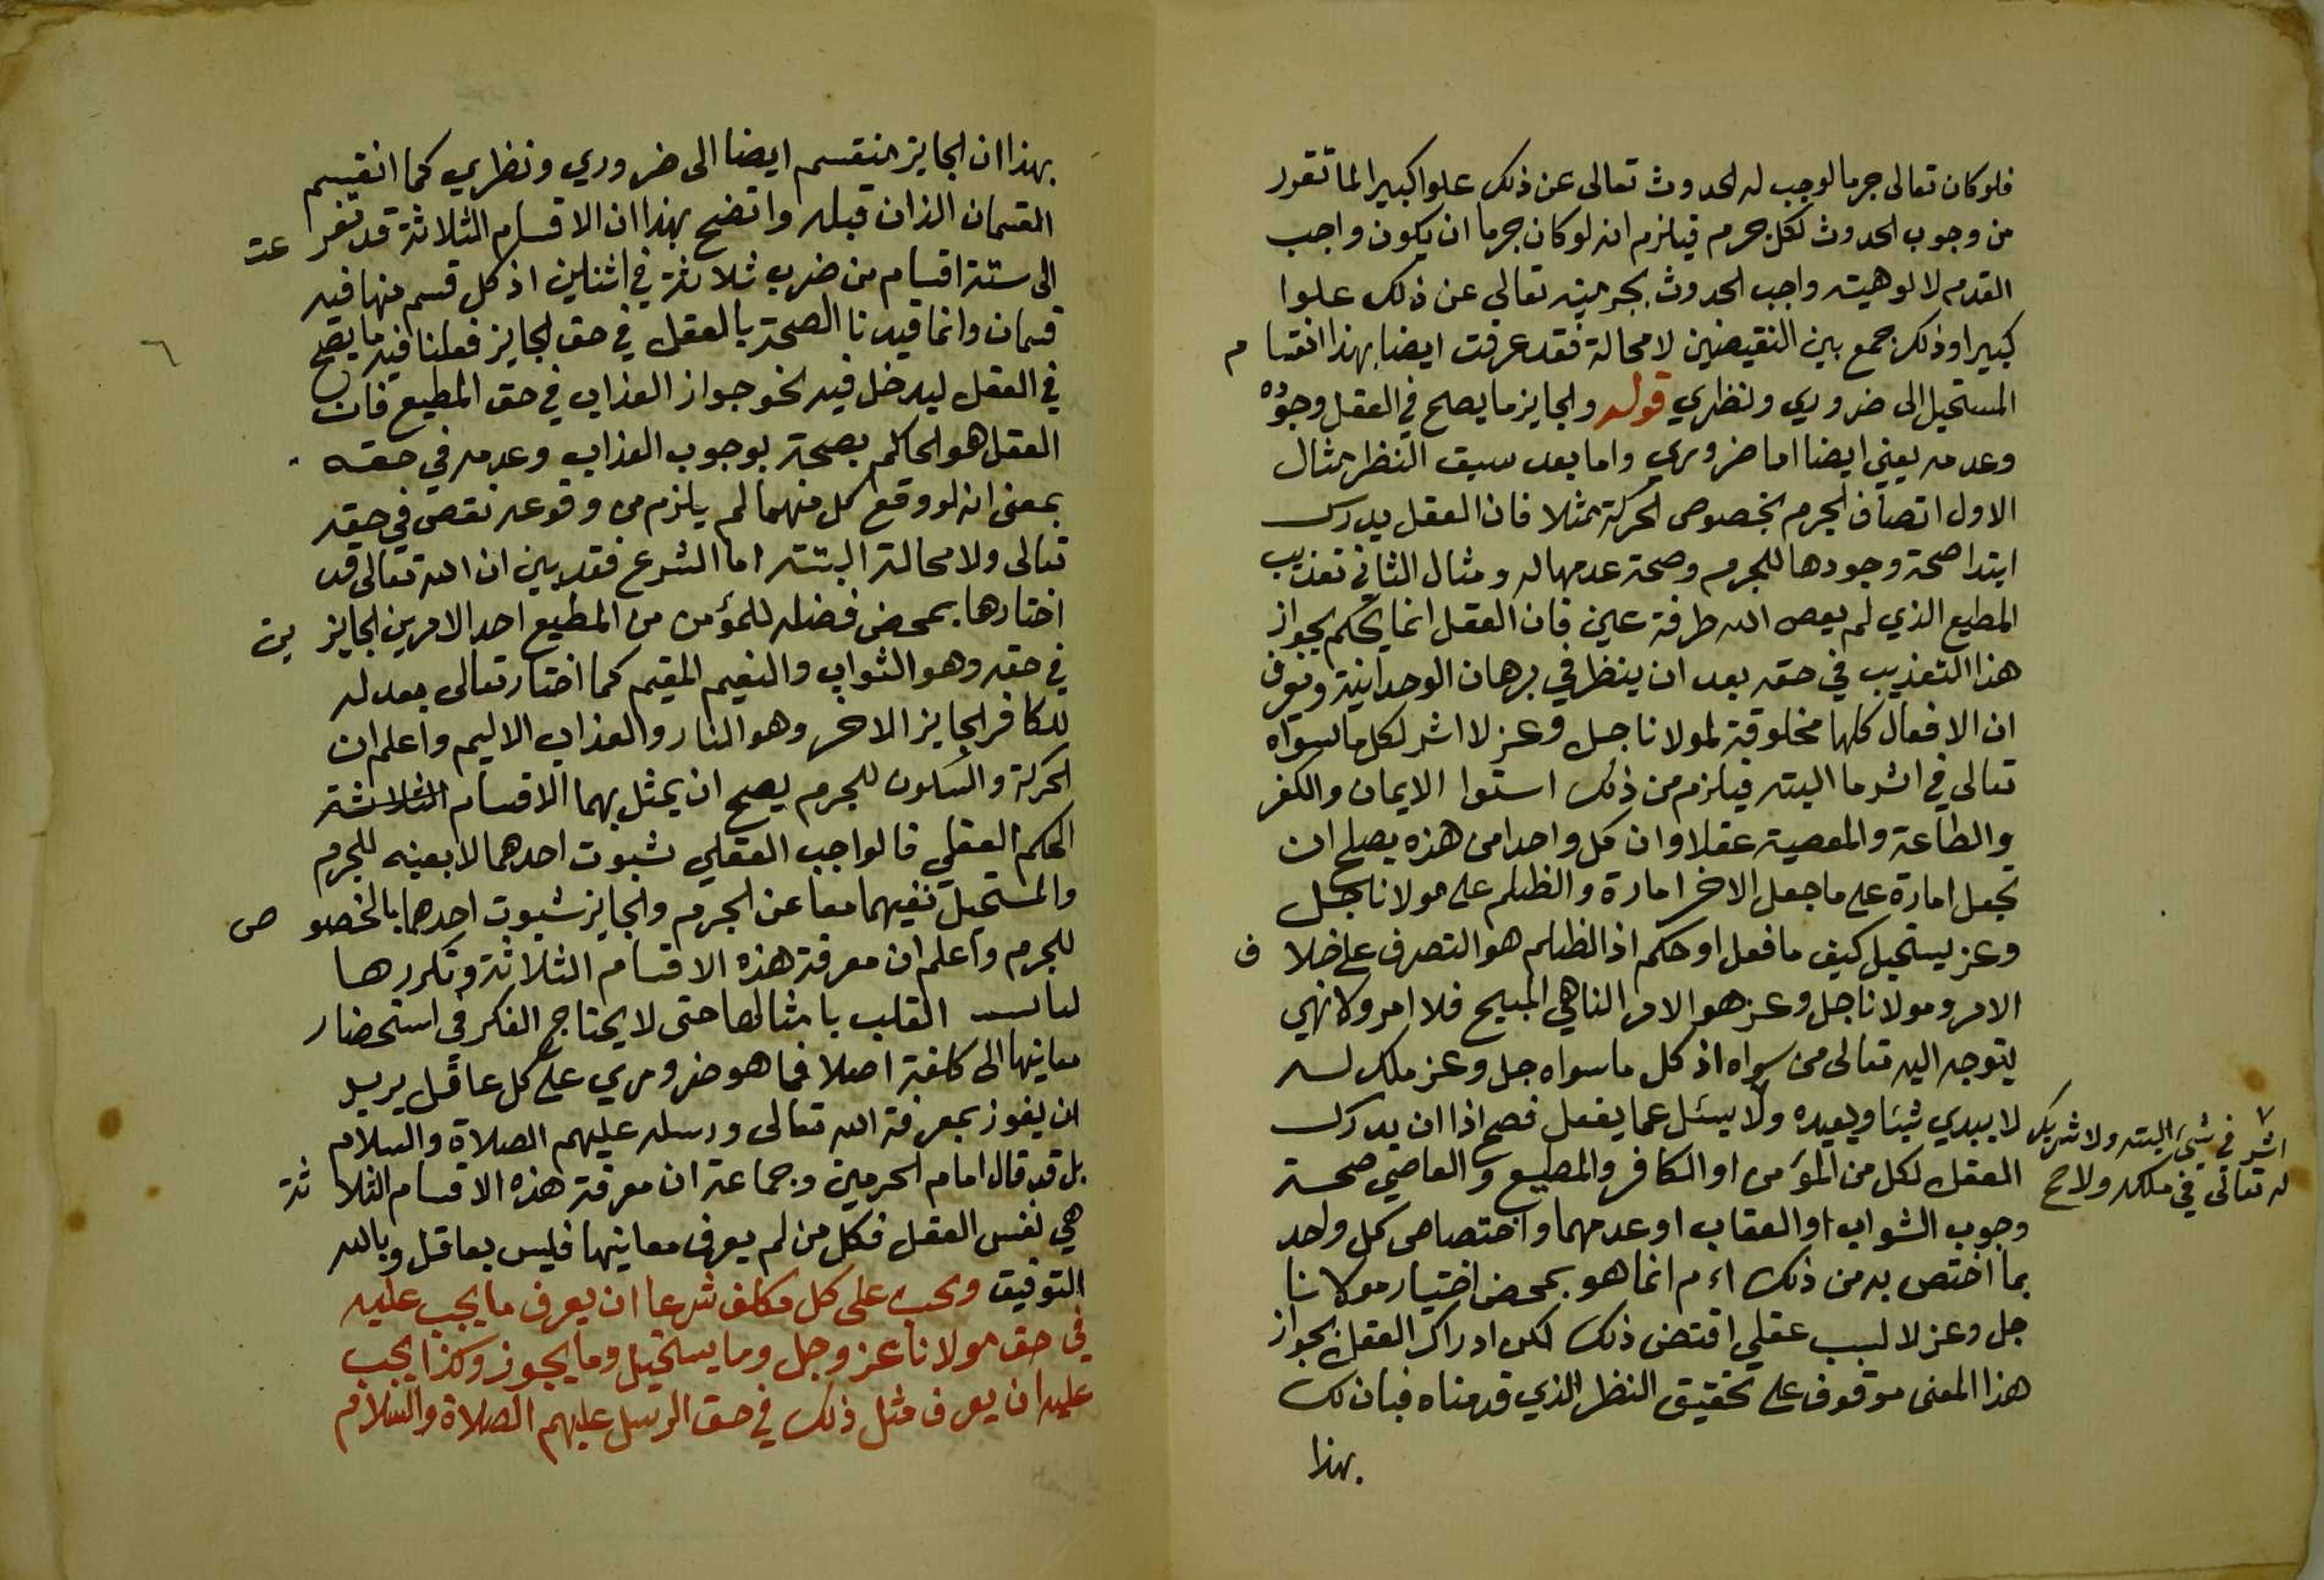 فلو كان تعالى جرما لوجب له الحدوث تعالى عن ذلك علوا كبيرا لما تقرر
من وجوب الحدوث لكل جرم فيلزم انه لو كان جرما ان يكون واجب
القدم لالوهيته واجب الحدوث بجرميته تعالى عن ذلك علوا
كبيرا وذلك جمع بين النقيضين لا محالة فقد عرفت ايضا بهذا انقسام
المستحيل الى ضروري ونظري قوله والجايز ما يصلح في العقل وجوده
وعدمه يعني ايضا اما ضروري واما بعد سبق النظر مثال
الاول اتصاف الجرم بخصوص الحركة مثلا فان العقل يدرك
ابتدا صحة وجودها للجرم وصحة عدمها له ومثال الثاني تعذيب
المطيع الذي لم يعص الله طرفة عين فان العقل انما يحكم بجواز
هذا التعذيب في حقه بعد ان ينظر في برهان الوحدانية وتعرف
ان الافعال كلها مخلوقة لمولانا جل وعز لا اثر لكل ما سواه
تعالى في اثر ما البته فيلزم من ذلك استوا الايمان والكفر
والطاعة والمعصية عقلا وان كل واحد من هذه يصلح ان
تجعل امارة على ما جعل الاخر امارة والظلم على مولانا جل
وعز يستحيل كيف ما فعل او حكم اذ الظلم هو التصرف على خلاف
الامر ومولانا جل وعز هو الامر الناهي المبيح فلا امر ولا نهي
يتوجه اليه تعالى من سواه اذ كل ما سواه جل وعز ملك له
لا يبدي شيئا ويعيده ولا يسئل عما يفعل فصح اذا ان يدرك
اثر في شيء البته ولا شريك
له تعالى في ملكه ولا حج
العقل لكل من المؤمن او الكافر والمطيع والعاصي صحة
وجوب الثواب او العقاب او عدمهما واختصاص كل واحد
بما اختص به من ذلك انما هو بمحض اختيار مولانا
جل وعز لا لسبب عقلي اقتضى ذلك لكن ادراك العقل بجواز
هذا المعنى موقوف على تحقيق النظر الذي قدمناه فبان لك
بهذا
بهذا ان الجايز منقسم ايضا الى ضروري ونظري كما انقسم
القسمان الذان قبله واتضح بهذا ان الاقسام الثلاثة قد تفرعت
الى ستة اقسام من ضرب ثلاثة في اثنين اذ كل قسم منها فيه
قسمان وانما قيدنا الصحة بالعقل في حق الجايز فعلنا فيه ما يصح
٦
في العقل ليدخل فيه نحو جواز العذاب في حق المطيع فان
العقل هو الحاكم بصحة بوجوب العذاب وعدمه في حقه
بمعنى انه لو وقع كل منهما لم يلزم من وقوعه نقص في حقه
تعالى ولا محالة البتته اما الشرع فقد بين ان الله تعالى قد
اختارها بمحض فضله للمؤمن من المطيع احد الامرين الجايزين
في حقه وهو الثواب والنعيم المقيم كما اختار تعالى بعدله
للكافر الجايز الاخر وهو النار والعذاب الاليم واعلم ان
الحركة والسكون للجرم يصح ان يمثل بهما الاقسام الثلاثة
الحكم العقلي فالواجب العقلي ثبوت احدهما لا بعينه للجرم
والمستحيل نفيهما معا عن الجرم والجايز ثبوت احدهما بالخصوص
للجرم واعلم ان معرفة هذه الاقسام الثلاثة وتكررها
القلب بامثالها حتى لا يحتاج الفكر في استحضار
معاينها الى كلفة اصلا فما هو ضروري على كل عاقل يريد
ان يفوز بمعرفة الله تعالى ورسله عليهم الصلاة والسلام
بل قد قال امام الحرمين وجماعة ان معرفة هذه الاقسام الثلاثة
هي نفس العقل فكل من لم يعرف معاينها فليس بعاقل وبالله
التوفيق ويجب على كل مكلف شرعا ان يعرف ما يجب عليه
في حق مولانا عز وجل وما يستحيل وما يجوز وكذا يجب
عليه ان يعرف مثل ذلك في حق الرسل عليهم الصلاة والسلام